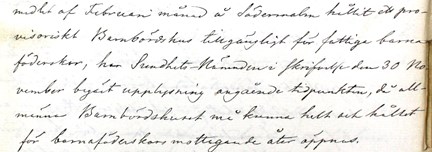 medlet af Februari månad å Södermalm hållit ett pro-
visoriskt Barnbördshus tillgängligt för fattiga barna-
föderskor, har Sundhets-Nämnden i skrifvelse den 30 No-
vember begärt upplysning angående tidpunkten, då all-
männa Barnbördshuset må kunna helt och hållet
för barnaföderskors mottagande åter öppnas.